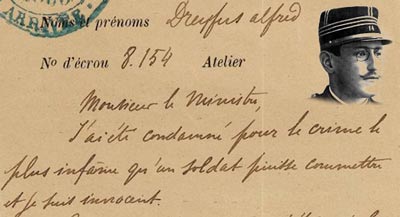 ARRIVÉE
Noms et prénoms Dreyfus alfred
N° d'écrou 8.154 Atelier
Monsieur le Ministre,
J'ai été condamné pour le crime le
plus infâme qu'un soldat puisse commettre
et je suis innocent.